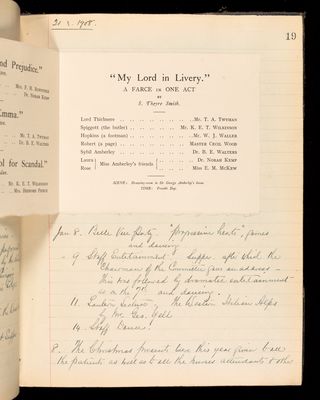 21.1.1908.
19
nd Prejudice."
Mrs. F. H. Sandeford
Dr. Norah Kemp
Emma."
Mr. T. A. Twyman
Dr. B. E. Walters
ol for Scandal."
Mr. K. E. T. Wilkinson
Mrs. Bedford Pierce
"My Lord in Livery."
A FARCE IN ONE ACT
BY
S. Theyre Smith.
Lord Thirlmere .. .. .. .. Mr. T. A. Twyman
Spiggott (the butler) .. .. .. Mr. K. E. T. Wilkinson
Hopkins (a footman) .. .. .. Mr. W. J. Waller
Robert (a page) .. .. .. Master Cecil Wood
Sybil Amberley .. .. .. Dr. B. E. Walters
Laura } Miss Amberley's friends { .. .. Dr. Norah Kemp
Rose .. .. Miss E. M. McKew
SCENE: Drawing-room in Sir George Amberley's house.
TIME: Present Day.
Jan 8. Belle Vue Party. "Progressive heats", games
and dancing.
- 9. Staff Entertainment. Supper, after which the
Chairman of the Committee gave an address -
This was followed by dramatic entertainment
as on the 7th and dancing.
11. Lantern lecture, The Western Italian Alps
by Mr. Geo. Yeld
14. Staff Dance!
8. The Christmas presents were this year given to all
the patients as well as to all the nurses attendants & other